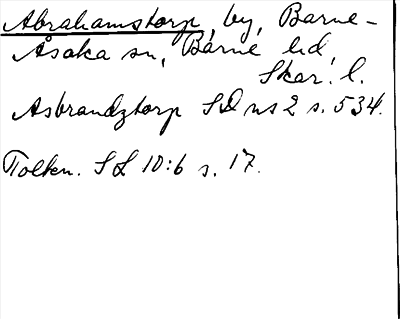 Abrahamstorp, by, Barne-
Åsaka sn, Barne hd,
Skar. l.
Asbrandztorp SD ns 2 s. 534.
Tolken. SL 10:6 s. 17.